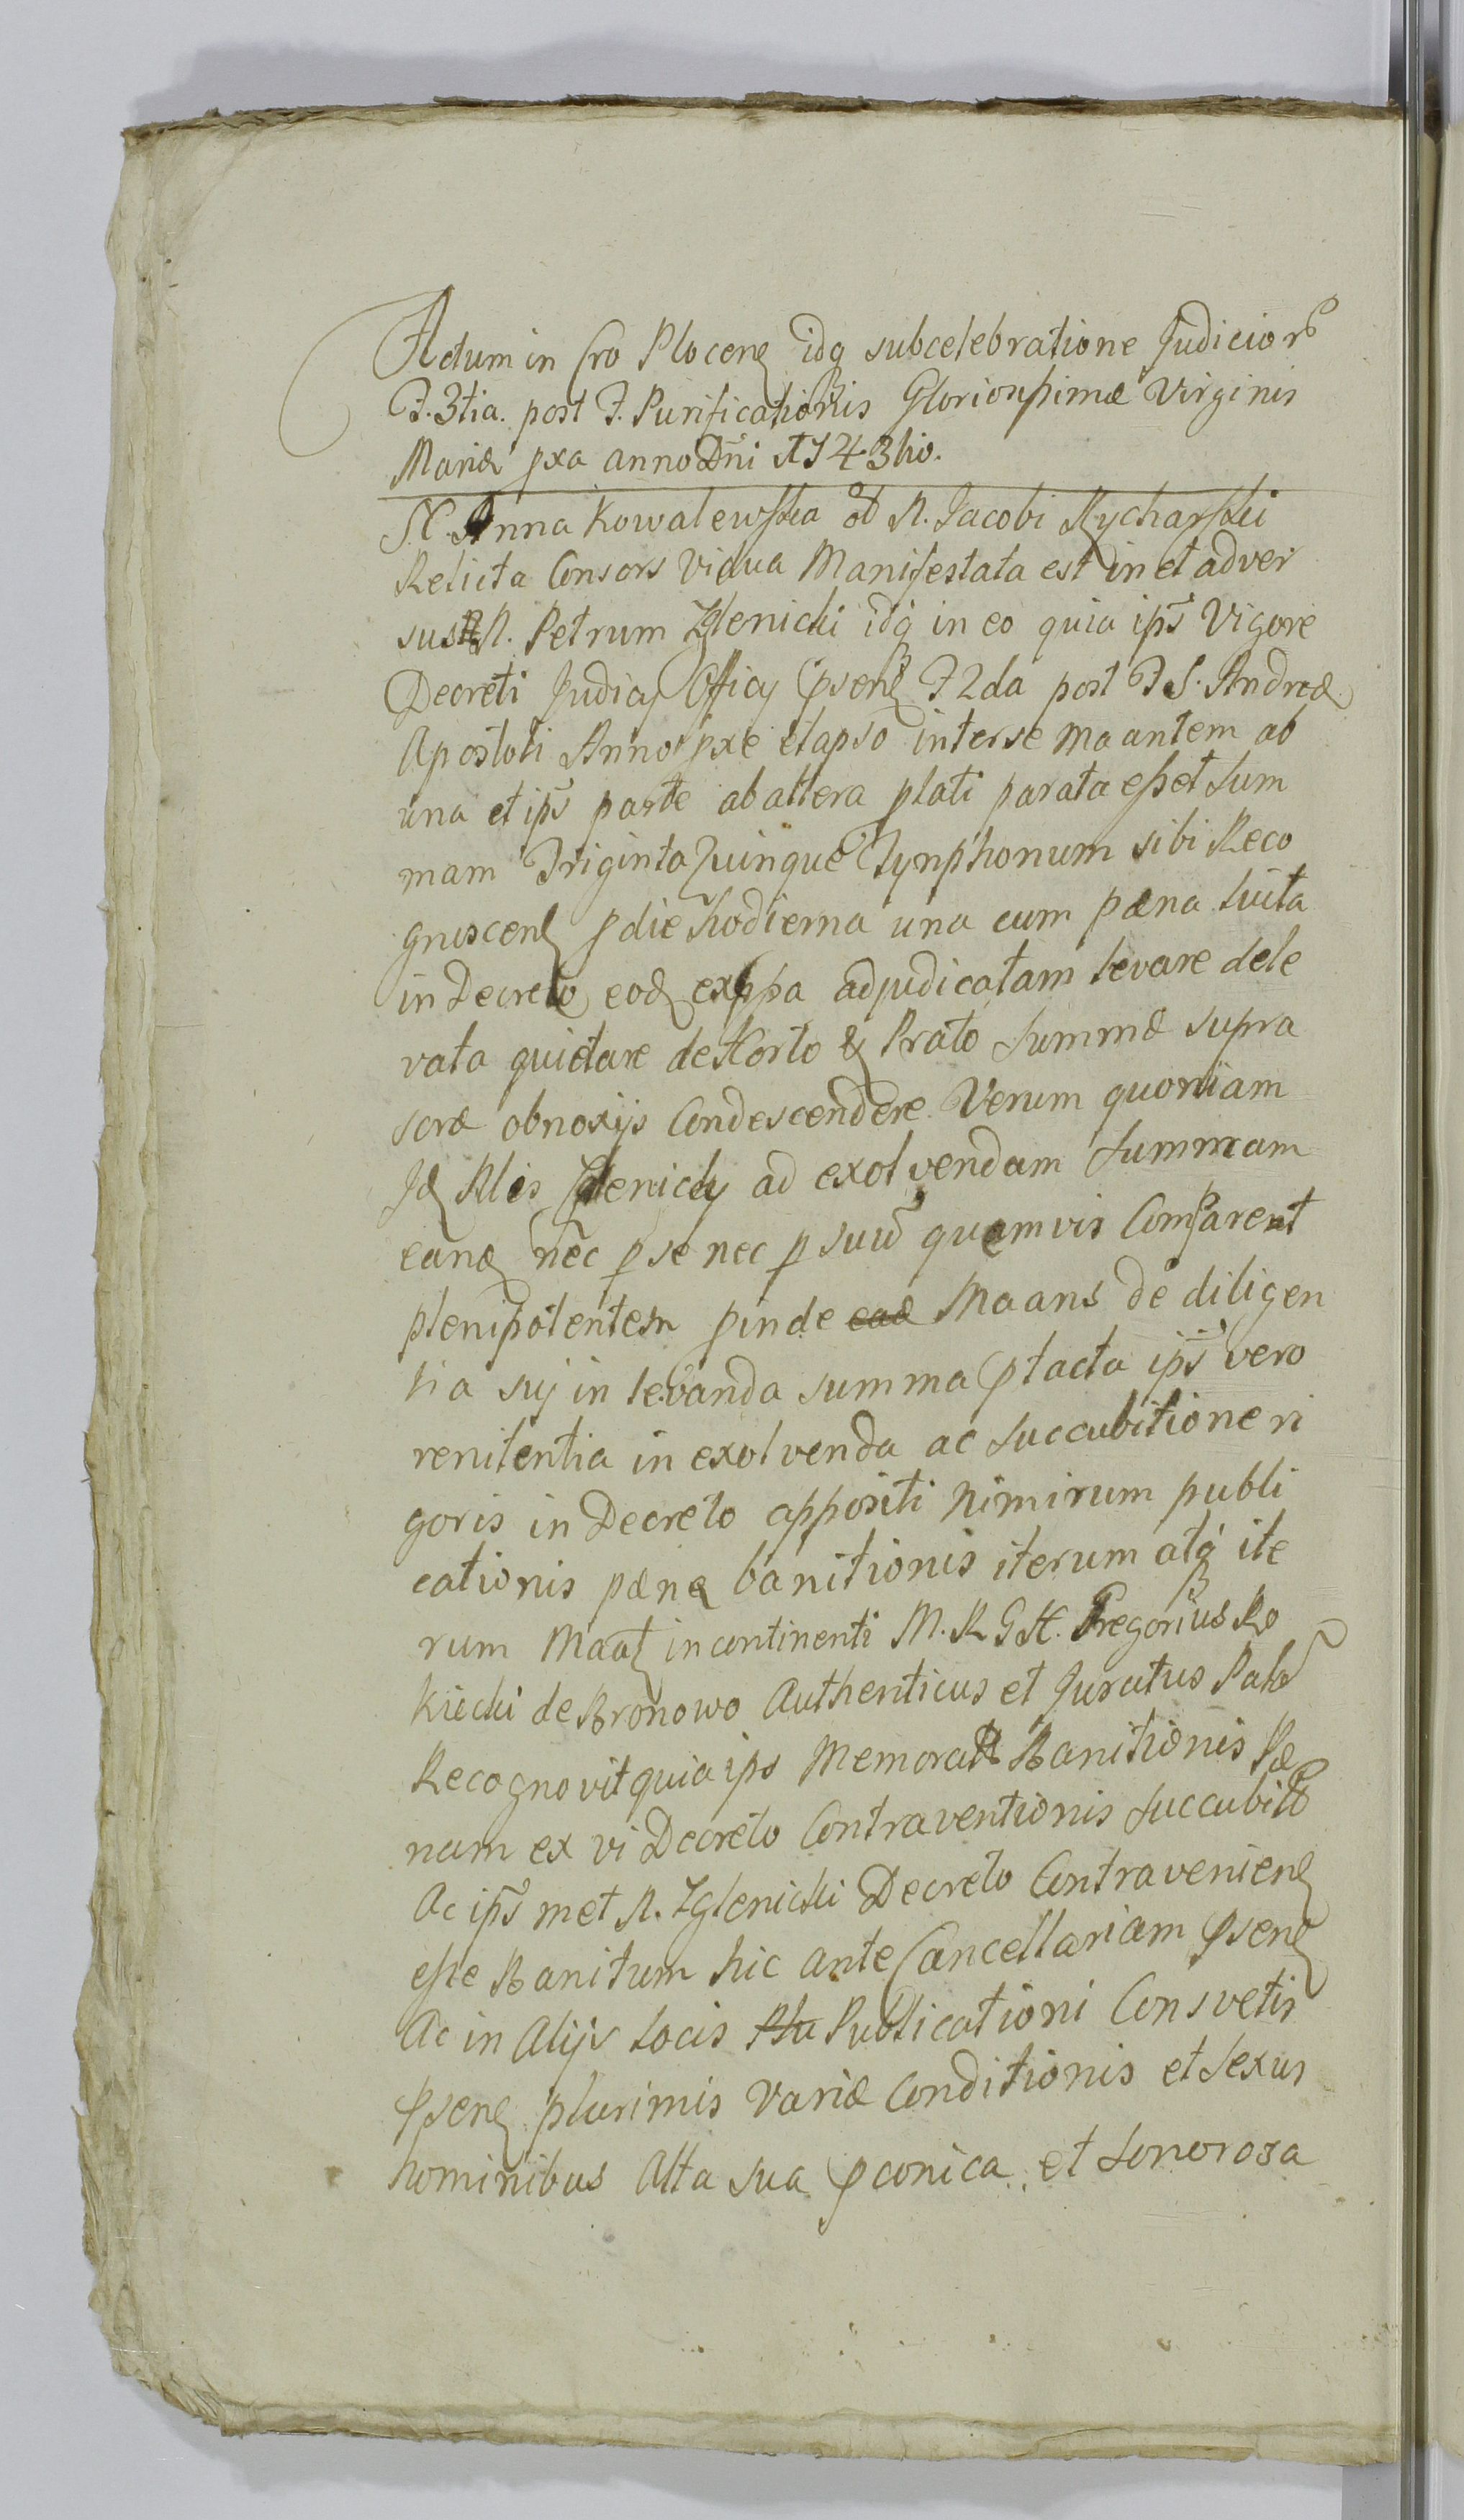 Actum in Cro Plocen idq sub celebratione Judicior
F. 3tia. post F. Purificationis Gloriosissimæ Virginis
Mariæ pxa anno Dni 1743tio.
N. Anna Kowalewska ol N. Jacobi Rycharski
Relicta Consors Vidua Manifestata est in et adver
sus N. Petrum Zglenicki idq in eo quia ips Vigore
Decreti Judicij Officij psen F 2da post F S. Andreæ
Apostoli Anno pxe elapso inter se Maantem ab
una et ips parte ab altera plati parata esset Sum
mam Triginta Quinque Tynphonum sibi Reco
gnoscen p die hodierna una cum pæna luita
in Decreto eod expssa adjudicatam levare de le
vata quietare de Horto & Prato Summæ supra
scræ obnoxijs Condescendere Verum quoniam
Id Nlis Zglenicky ad exolvendam Summam
eand nec p se nec p suu quemvis Comparent
plenipotentem pinde Maans de diligen
tia sui in levanda summa ptacta ips vero
renitentia in exolvenda ac Succubitione ri
goris in Decreto appositi nimirum publi
cationis pæne banitionis iterum atq ite
rum Maat in continenti M. R G H. Gregorius Ro
kicki de Bronowo Authenticus et Juratus Palo
Recognovit quia ips Memorat Banitionis Pæ
nam ex vi Decreto Contraventionis Succubit
Ac ips met N. Zglenicki Decreto Contravenien
esse Banitum hic ante Cancellariam psen
Ac in Alijs Locis Publicationi Consvetis
psen plurimis Variæ Conditionis et Sexus
hominibus Alta sua pconica et Sonorosa